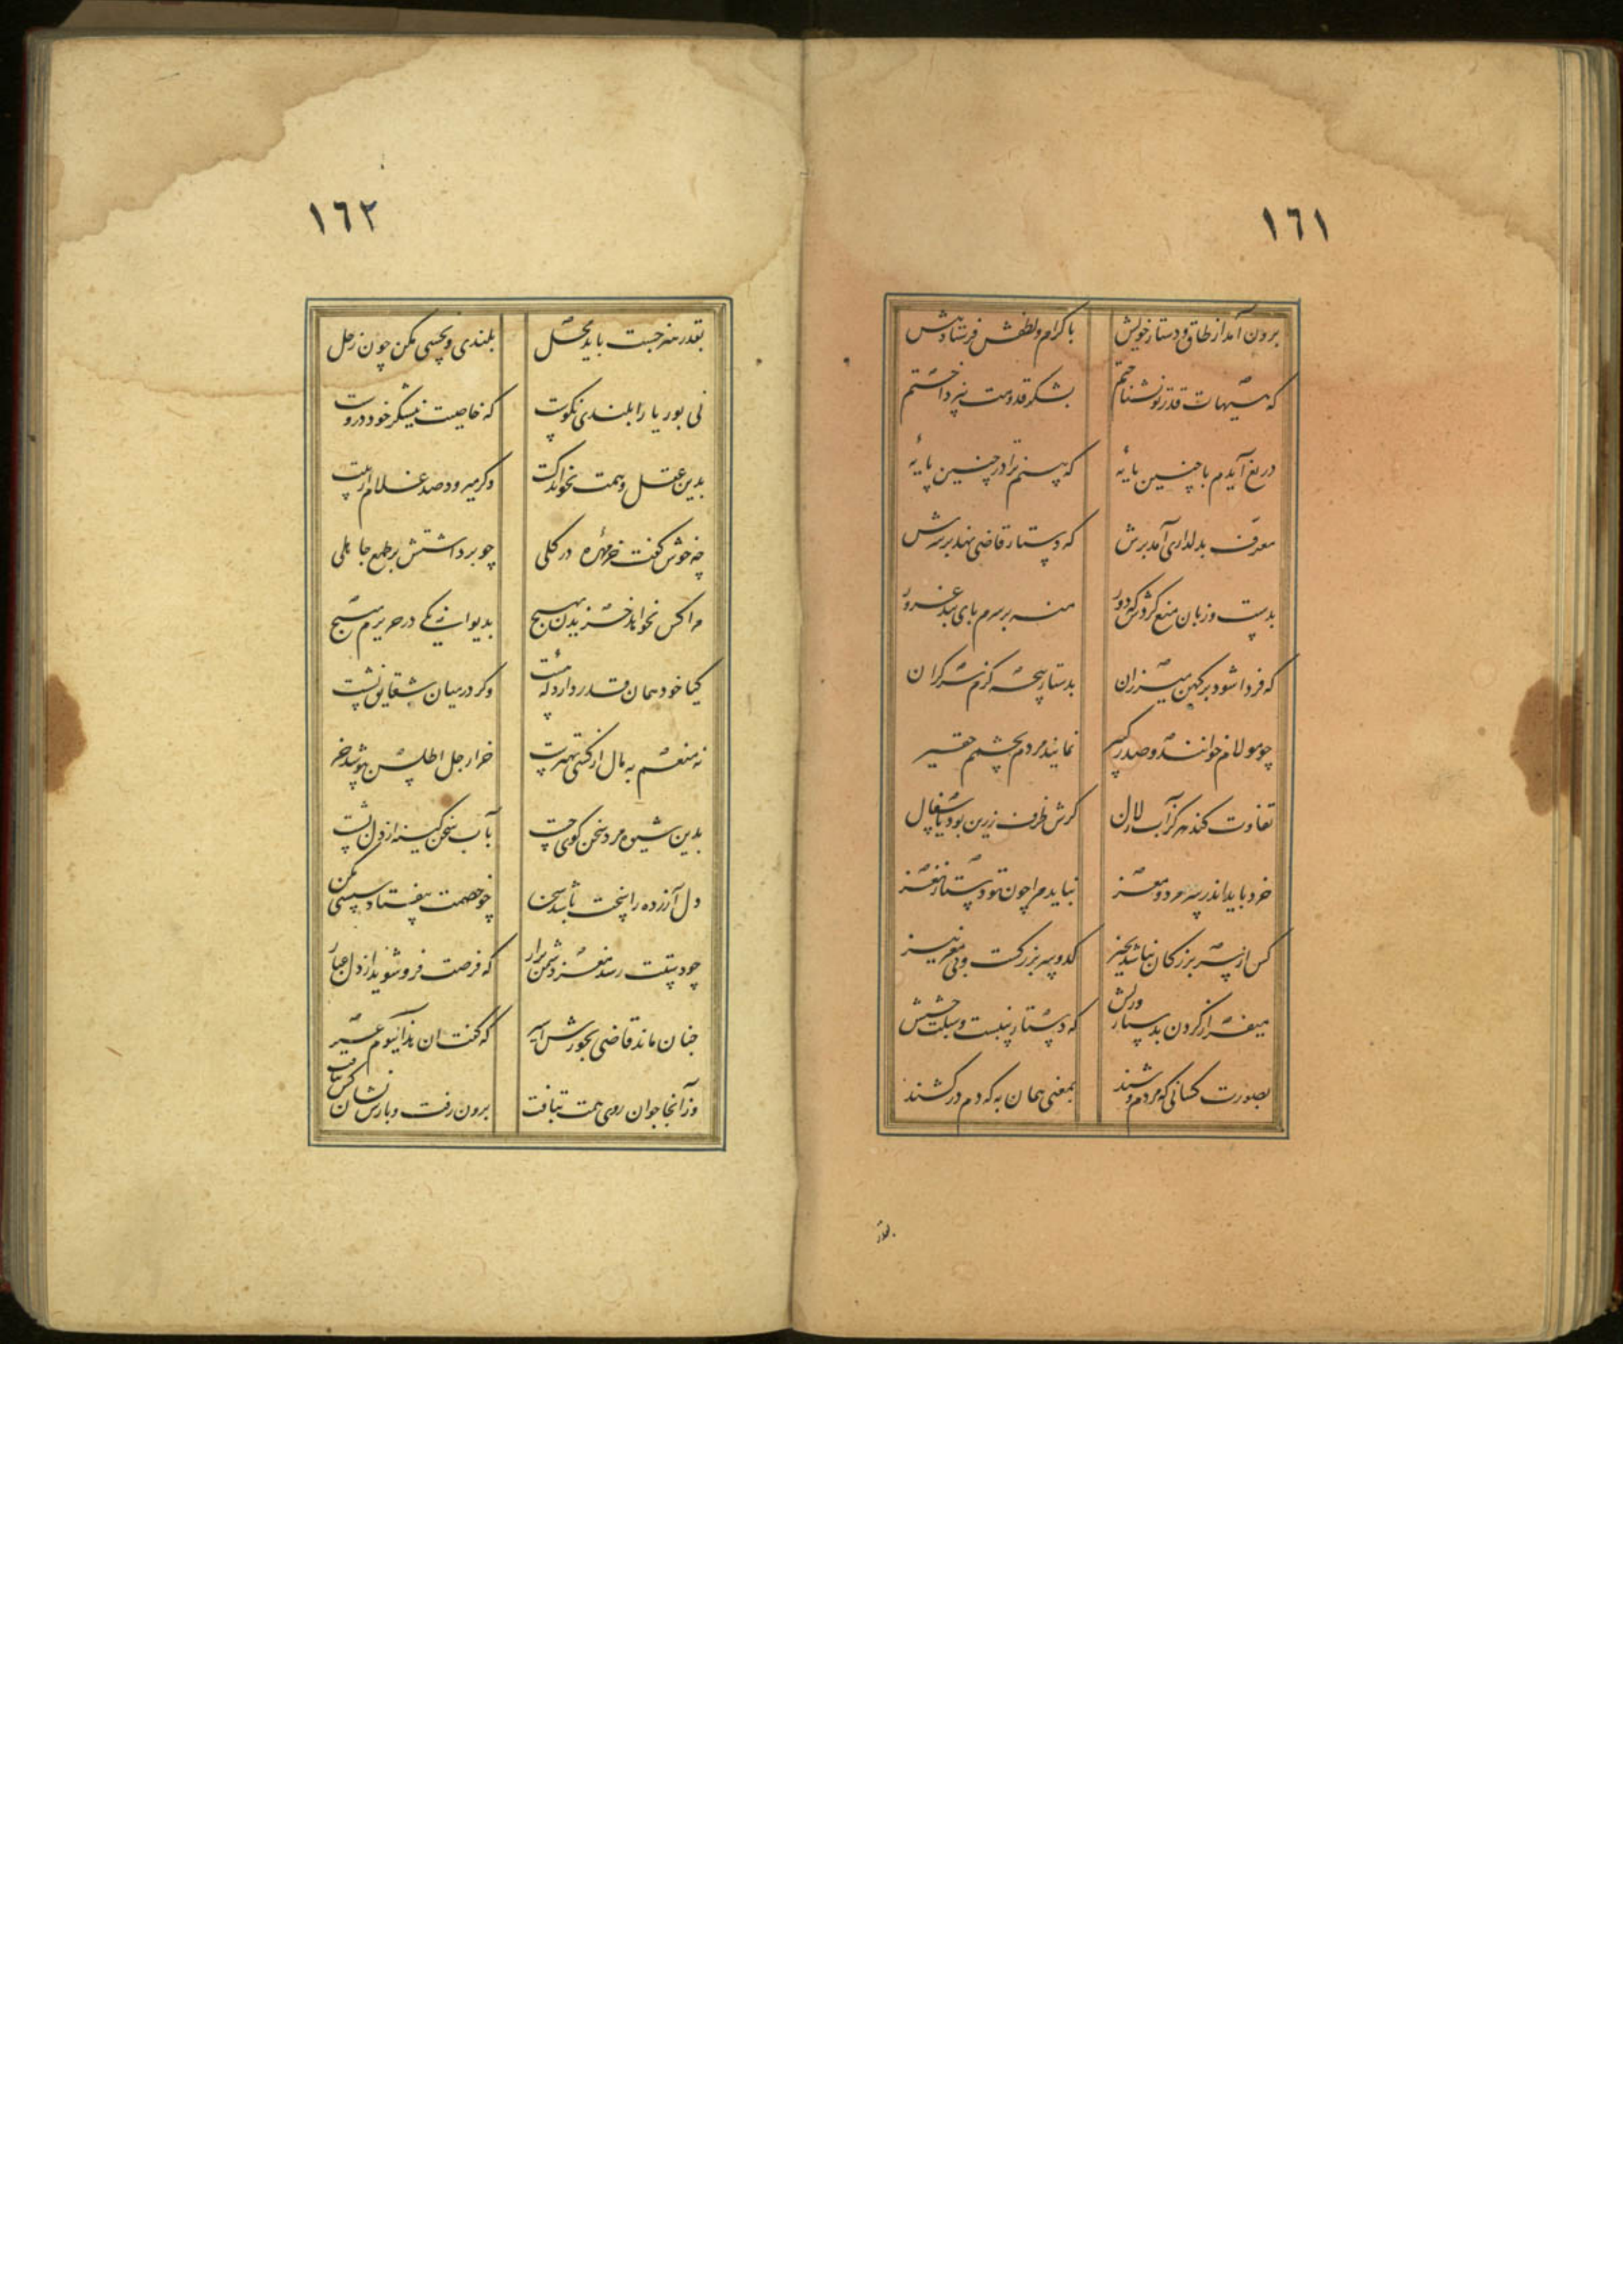 ١٦١
برون آمد از طاق و دستار خویش باکرام و لطفش فرستاد پیش
که هیهات قدر تو نشناختم بشکر قدومت نپرداختم
دریغ آیدم با چنین مایهٔ که بینم ترا در چنین پایهٔ
معرف بدلداری آمد برش که دستار قاضی نهد بر سرش
بدست و زبان منع کردش که دور منه بر سرم پای بند غرور
که فردا شود بر کهن میزران بدستار پنجه گزم سرگران
چو مولام خوانند و صدر کبیر نمایند مردم بچشم حقیر
تفاوت کند هرگز آب زلال گرش ظرف زرین بود یا سفال
خرد باید اندر سر مرد و مغز نباید مرا چون تو دستار نغز
کس از سر بزرگان نباشد بچیز کدو سر بزرگست و بی مغز نیز
میفراز گردن بدستار و ریش که دستار پنبست و سبلت حشیش
بصورت کسانی که مردم وشند بمعنی همان به که دم درکشند
بقدر
١٦٢
بقدر هنر جست باید محل بلندی و نحسی مکن چون زحل
نی بوریا را بلندی نکوست که خاصیت نیشکر خود دروست
بدین عقل و همت نخوانم کست وکر میرود صد غلام از پست
چه خوش گفت خرمهرهٔ در گلی چو برداشتش پر طمع جاهلی
مرا کس نخواهد خریدن بهیچ بدیوانگی در حریرم مپیچ
کیا خود همان قدر دارد که هست وکر در میان شقایق نشست
نه منعم به مال از کسی بهترست خر ار جل اطلس بپوشد خرست
بدین شیوه مرد سخن گوی چست بآب سخن کینه از دل بشست
دل آزرده را سخت باشد سخن چو خصمت بیفتاد سستی مکن
چو دستت رسد مغز دشمن برار که فرصت فرو شوید از دل غبار
چنان ماند قاضی بجورش اسیر که گفت ان هذا لیوم عسیر
وز آنجا جوان روی همت بتافت برون رفت و بازش نشان کس نیافت